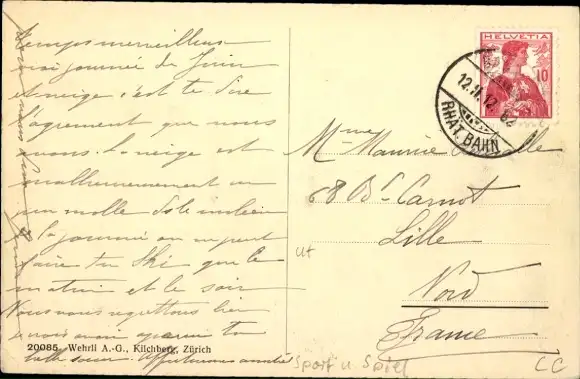 temps merveilleux
une journée de Juin
et neige c'est te dire
l'agrément que nous
avons. La neige est
malheureusement un
peu molle dès le milieu
de la journée on ne peut
faire du Ski que le
matin et le soir
Nous vous regrettons bien
20085. Wehrli A.-G., Kilchberg, Zürich
belle soeur. Affectueuses amitiés
HELVETIA
10
12.II.12
RHÄT. BAHN
Mme Maurice
68 Bd Carnot
Lille
Nord
France
ut
Sport u. Spiel
CC